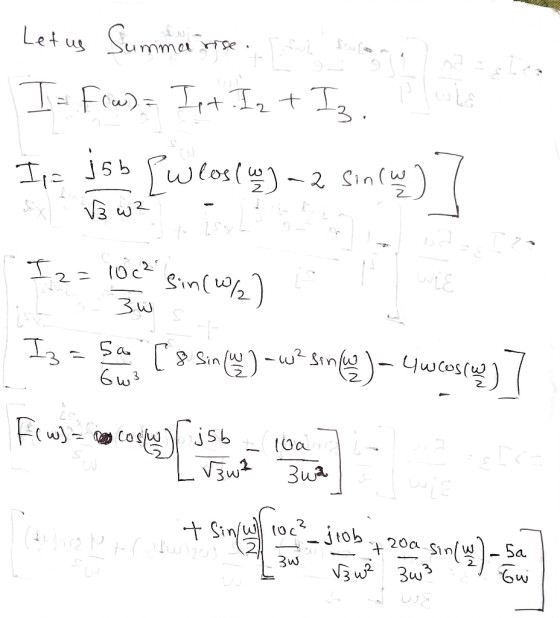 Let us Summarise.
I = F(w) = I₁ + I₂ + I₃.
I₁ = j5b/(√3 w²) [w cos(w/2) - 2 sin(w/2)]
I₂ = 10c²/(3w) sin(w/2)
I₃ = 5a/(6w³) [8 sin(w/2) - w² sin(w/2) - 4w cos(w/2)]
F(w) = cos(w/2) [j5b/(√3 w²) - 10a/(3w²)]
+ sin(w/2) [10c²/(3w) - j10b/(√3 w²) + 20a/(3w³) sin(w/2) - 5a/(6w)]